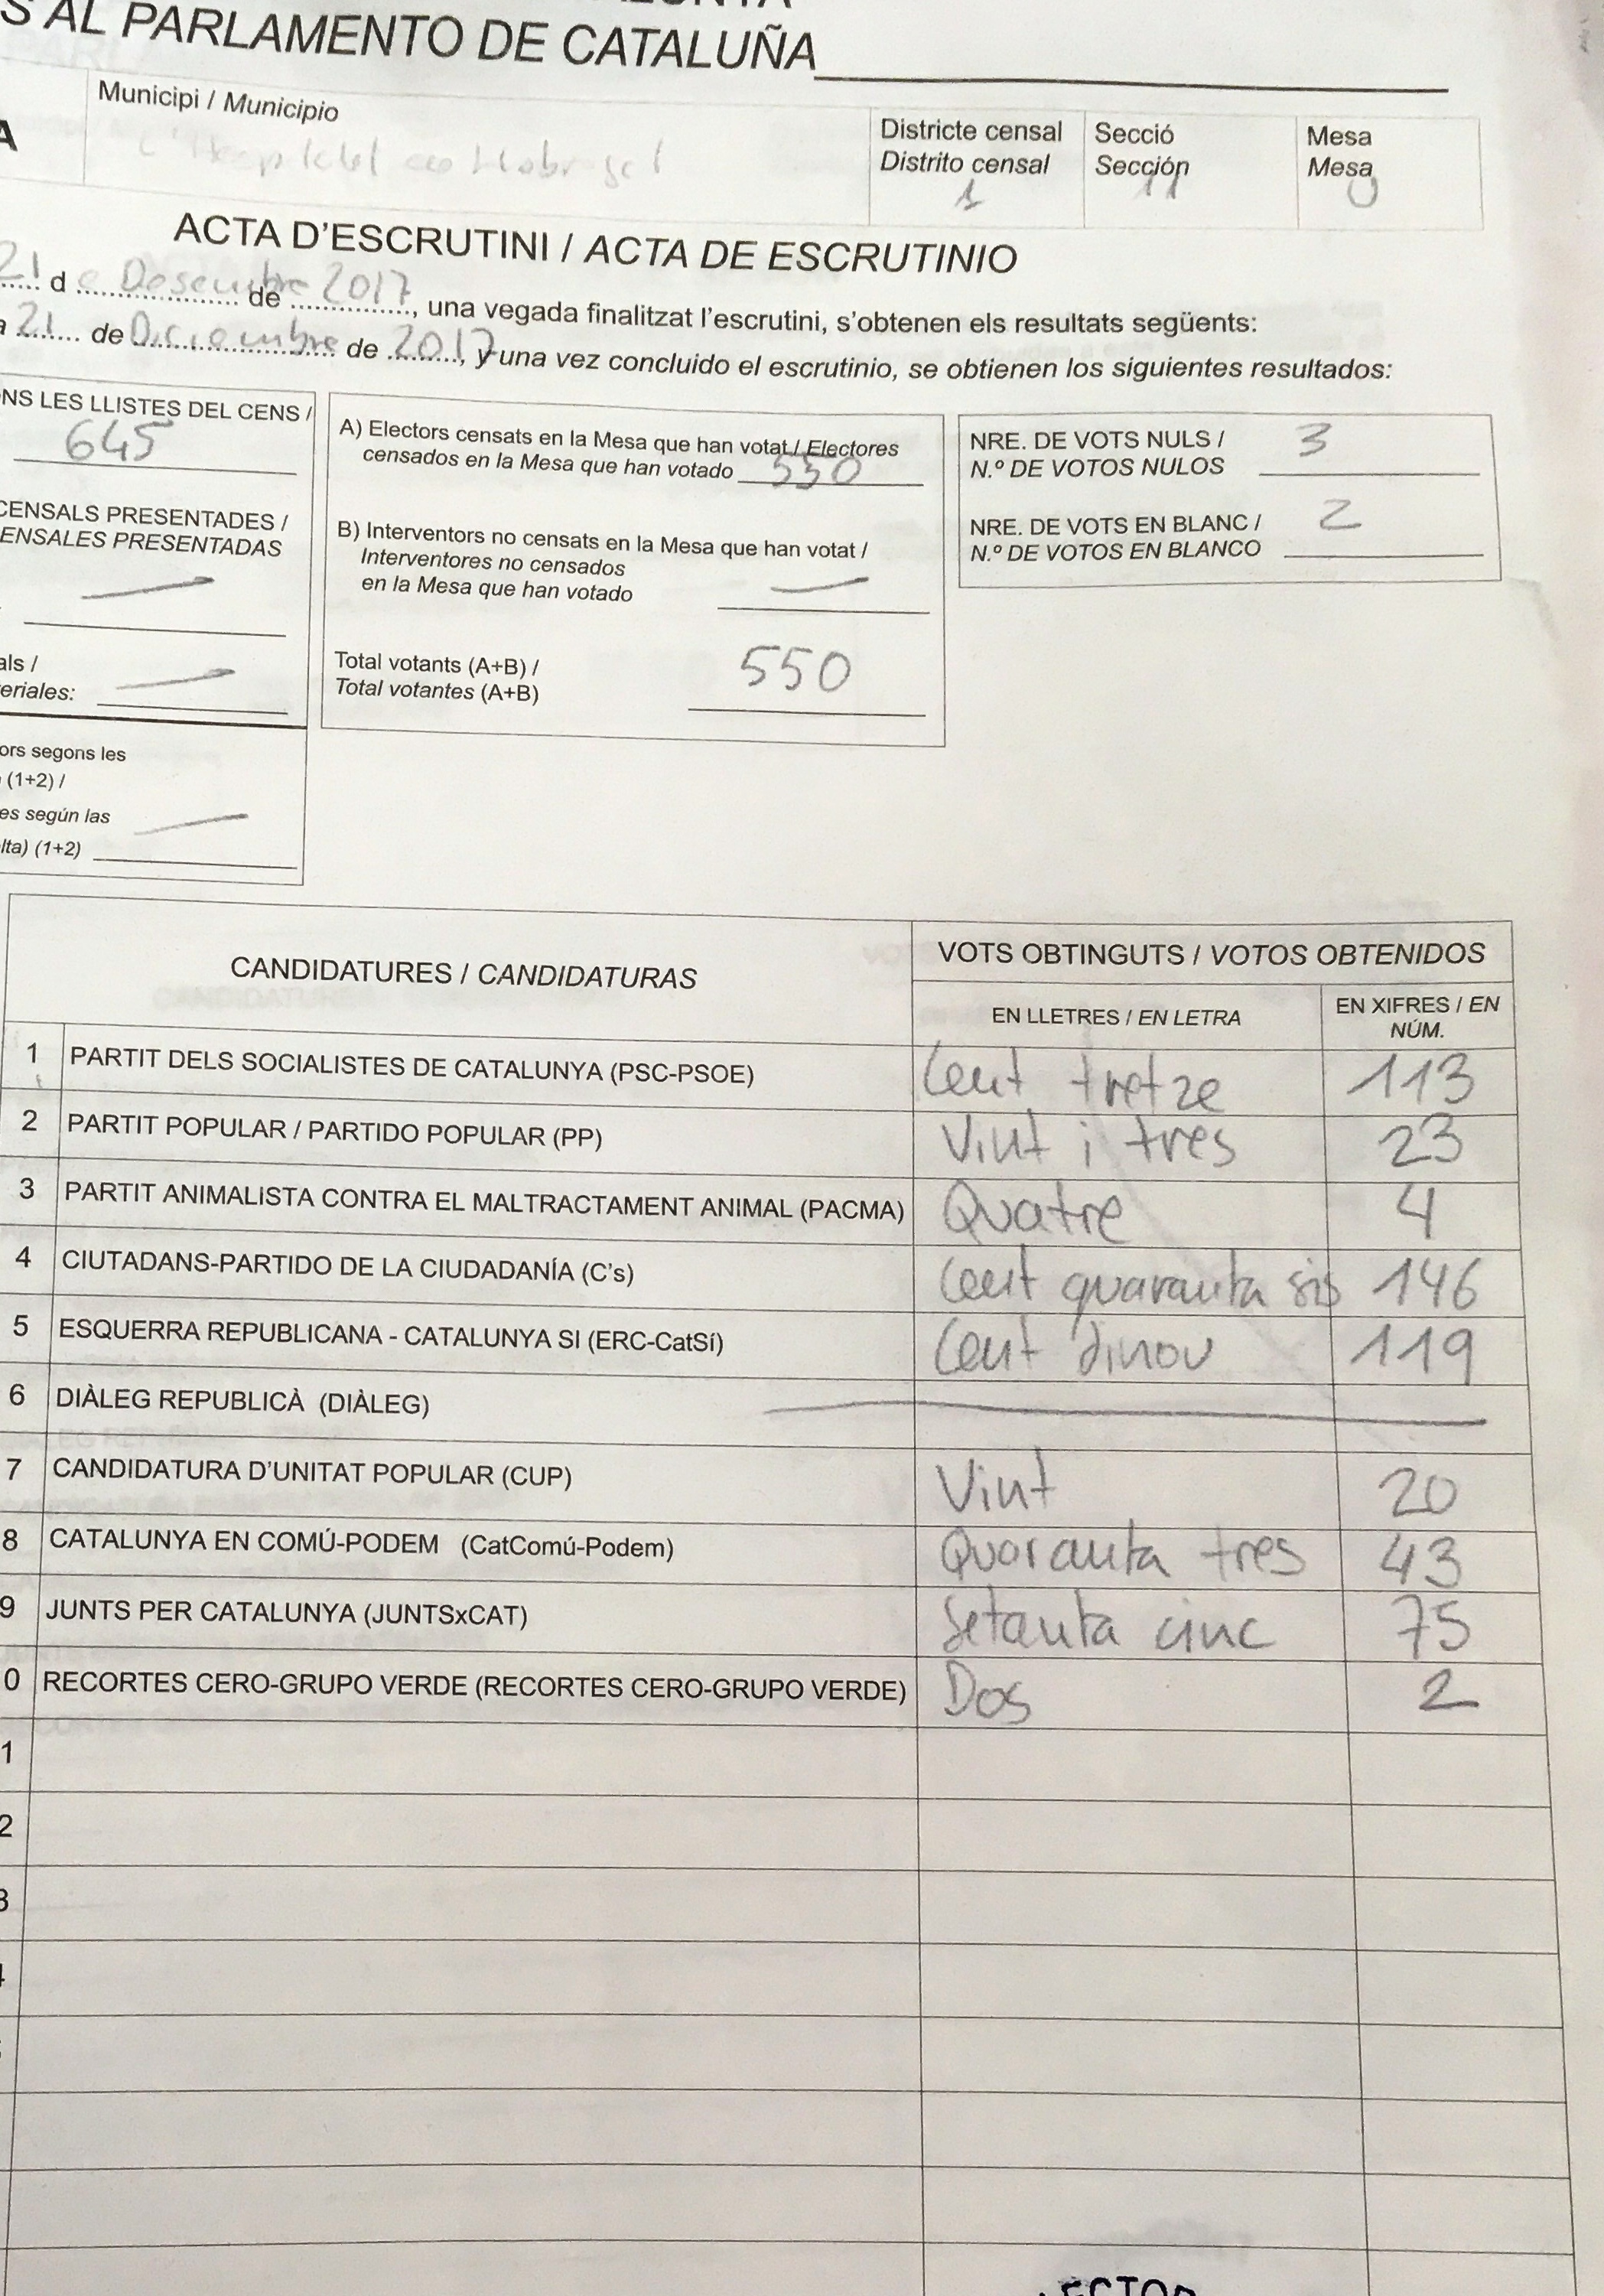 S AL PARLAMENTO DE CATALUÑA
A
Municipi / Municipio
L'Hospitalet de Llobregat
Districte censal
Distrito censal
1
Secció
Sección
11
Mesa
Mesa
U
ACTA D'ESCRUTINI / ACTA DE ESCRUTINIO
21 de Desembre de 2017, una vegada finalitzat l'escrutini, s'obtenen els resultats següents:
a 21 de Diciembre de 2017, y una vez concluido el escrutinio, se obtienen los siguientes resultados:
NS LES LLISTES DEL CENS /
645
CENSALS PRESENTADES /
ENSALES PRESENTADAS
—
als /
eriales: —
ors segons les
(1+2) /
es según las
lta) (1+2) —
A) Electors censats en la Mesa que han votat / Electores
censados en la Mesa que han votado 550
B) Interventors no censats en la Mesa que han votat /
Interventores no censados
en la Mesa que han votado —
Total votants (A+B) /
Total votantes (A+B) 550
NRE. DE VOTS NULS /
N.º DE VOTOS NULOS 3
NRE. DE VOTS EN BLANC /
N.º DE VOTOS EN BLANCO 2
CANDIDATURES / CANDIDATURAS
VOTS OBTINGUTS / VOTOS OBTENIDOS
EN LLETRES / EN LETRA
EN XIFRES / EN
NÚM.
1 PARTIT DELS SOCIALISTES DE CATALUNYA (PSC-PSOE) Cent tretze 113
2 PARTIT POPULAR / PARTIDO POPULAR (PP) Vint i tres 23
3 PARTIT ANIMALISTA CONTRA EL MALTRACTAMENT ANIMAL (PACMA) Quatre 4
4 CIUTADANS-PARTIDO DE LA CIUDADANÍA (C's) Cent quaranta sis 146
5 ESQUERRA REPUBLICANA - CATALUNYA SI (ERC-CatSí) Cent dinou 119
6 DIÀLEG REPUBLICÀ (DIÀLEG) —
7 CANDIDATURA D'UNITAT POPULAR (CUP) Vint 20
8 CATALUNYA EN COMÚ-PODEM (CatComú-Podem) Quoranta tres 43
9 JUNTS PER CATALUNYA (JUNTSxCAT) Setanta cinc 75
0 RECORTES CERO-GRUPO VERDE (RECORTES CERO-GRUPO VERDE) Dos 2
1
2
3
4